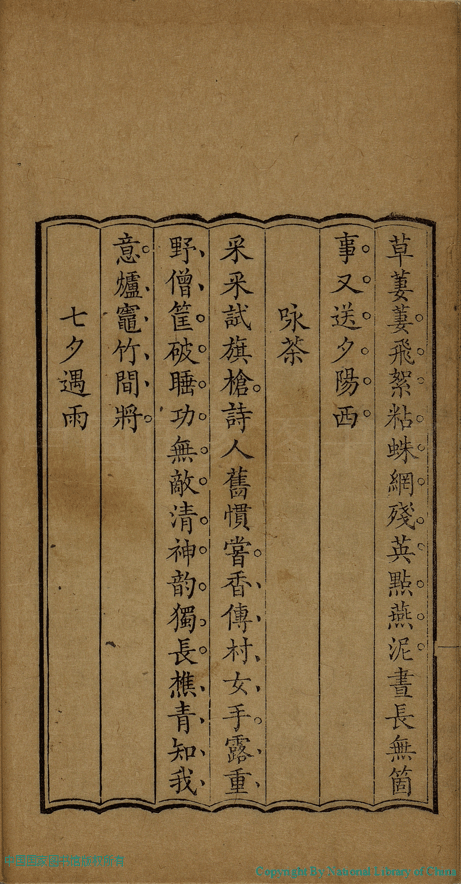 草萋萋飛絮粘蛛網殘英點燕泥晝長無箇
事又送夕陽西
咏茶
采采試旗槍詩人舊慣嘗香傳村女手露重
野僧筐破睡功無敵清神韵獨長樵青知我
意爐竈竹間將
七夕遇雨
Copyright By National Library of China